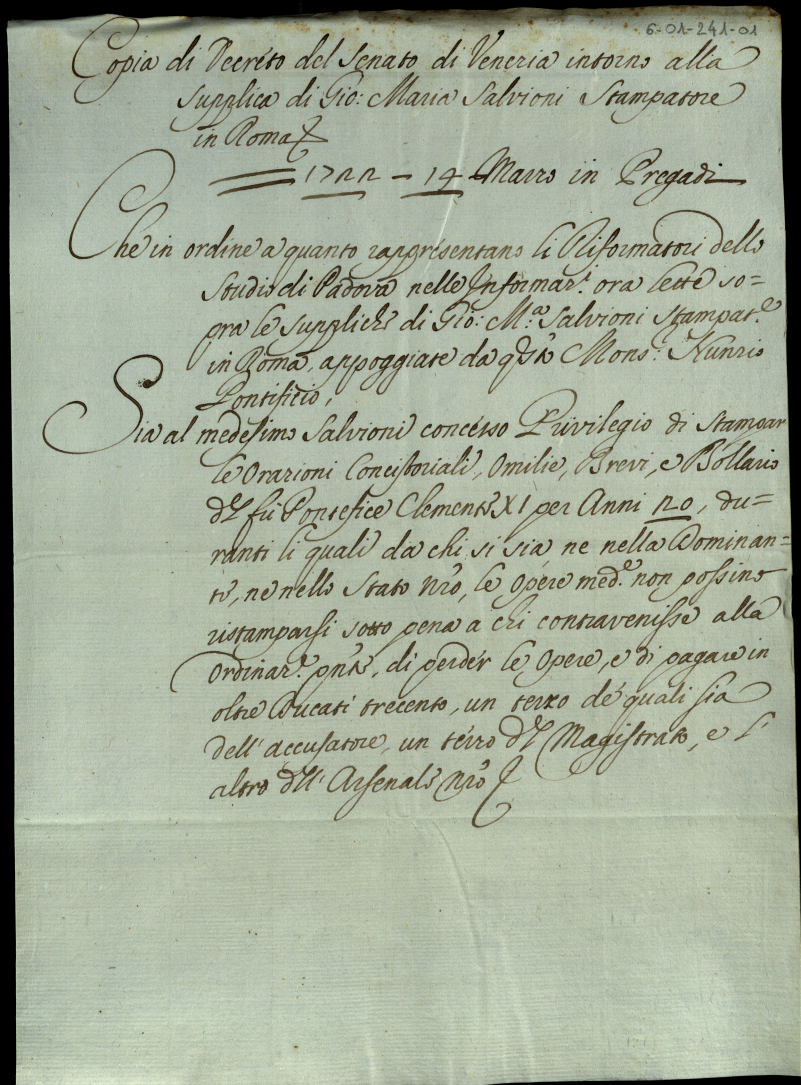 6-01-241-01
Copia di Decreto del Senato di Venezia intorno alla
supplica di Gio: Maria Salvioni Stampatore
in Roma
1722 - 14 Marzo in Pregadi
Che in ordine a quanto rappresentano li Riformatori dello
Studio di Padova nelle Informaz.i ora lette so=
pra le suppliche di Gio: M.a Salvioni Stampat.e
in Roma, appoggiate da q̃sto Mons.r Nunzio
Pontificio,
Sia al medesimo Salvioni concesso Privilegio di stampar
le Orazioni Concistoriali, Omilie, Brevi, e Bollario
del fù Pontefice Clemente XI per Anni 20, du=
ranti li quali da chi si sia ne nella Dominan=
te, ne nello Stato nr̃o, le Opere med.e non possino
ristamparsi sotto pena a chi contravenisse alla
Ordinaz.e pñte, di perder le Opere, e di pagare in
oltre Ducati trecento, un terzo de' quali sia
dell' accusatore, un terzo del Magistrato, e l'
altro dell' Arsenale nr̃o